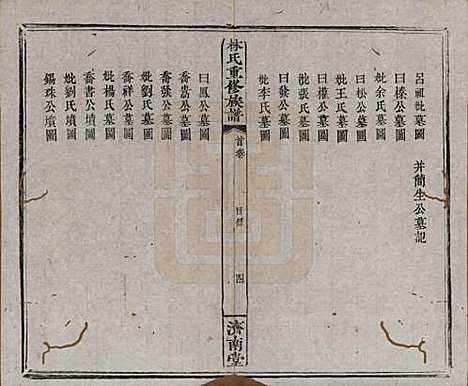 呂祖妣墓圖　并簡生公墓記
曰榛公墓圖
妣余氏墓圖
曰松公墓圖
妣王氏墓圖
曰權公墓圖
妣張氏墓圖
曰發公墓圖
妣李氏墓圖
林氏重修族譜
首卷
目錄
四
濟南堂
曰鳳公墓圖
喬嵩公墓圖
喬發公墓圖
妣劉氏墓圖
喬祥公墓圖
妣楊氏墓圖
喬書公墳圖
妣劉氏墳圖
錫珠公墳圖